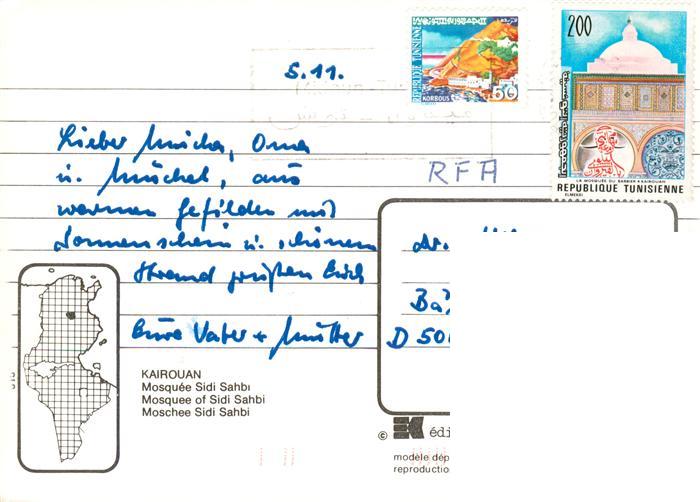 5.11.
REPUBLIQUE TUNISIENNE
KORBOUS
50
200
LA MOSQUEE DU BARBIER KAIROUAN
REPUBLIQUE TUNISIENNE
ELMEKKI
Lieber Oma
u. Michel, aus
warmen Gefilden mit
Sonnenschein u. schönem
Strand grüßen Euch
Eure Vater + Mutter
RFA
D 50
KAIROUAN
Mosquée Sidi Sahbi
Mosquee of Sidi Sahbi
Moschee Sidi Sahbi
© édi
modèle dép
reproductio